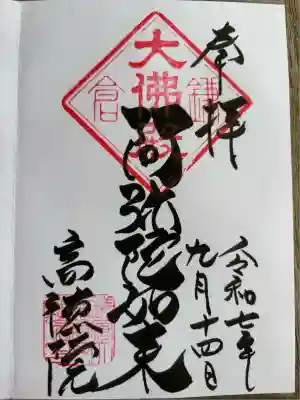 奉拝
令和七年
九月十四日
大佛殿
鎌倉
阿弥陀如来
高徳院